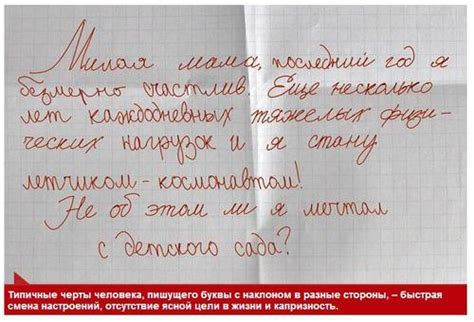 Милая мама, последний год я
безмерно счастлив. Еще несколько
лет каждодневных тяжелых физи-
ческих нагрузок и я стану
летчиком - космонавтом!
Не об этом ли я мечтал
с детского сада?
Типичные черты человека, пишущего буквы с наклоном в разные стороны, – быстрая
смена настроений, отсутствие ясной цели в жизни и капризность.